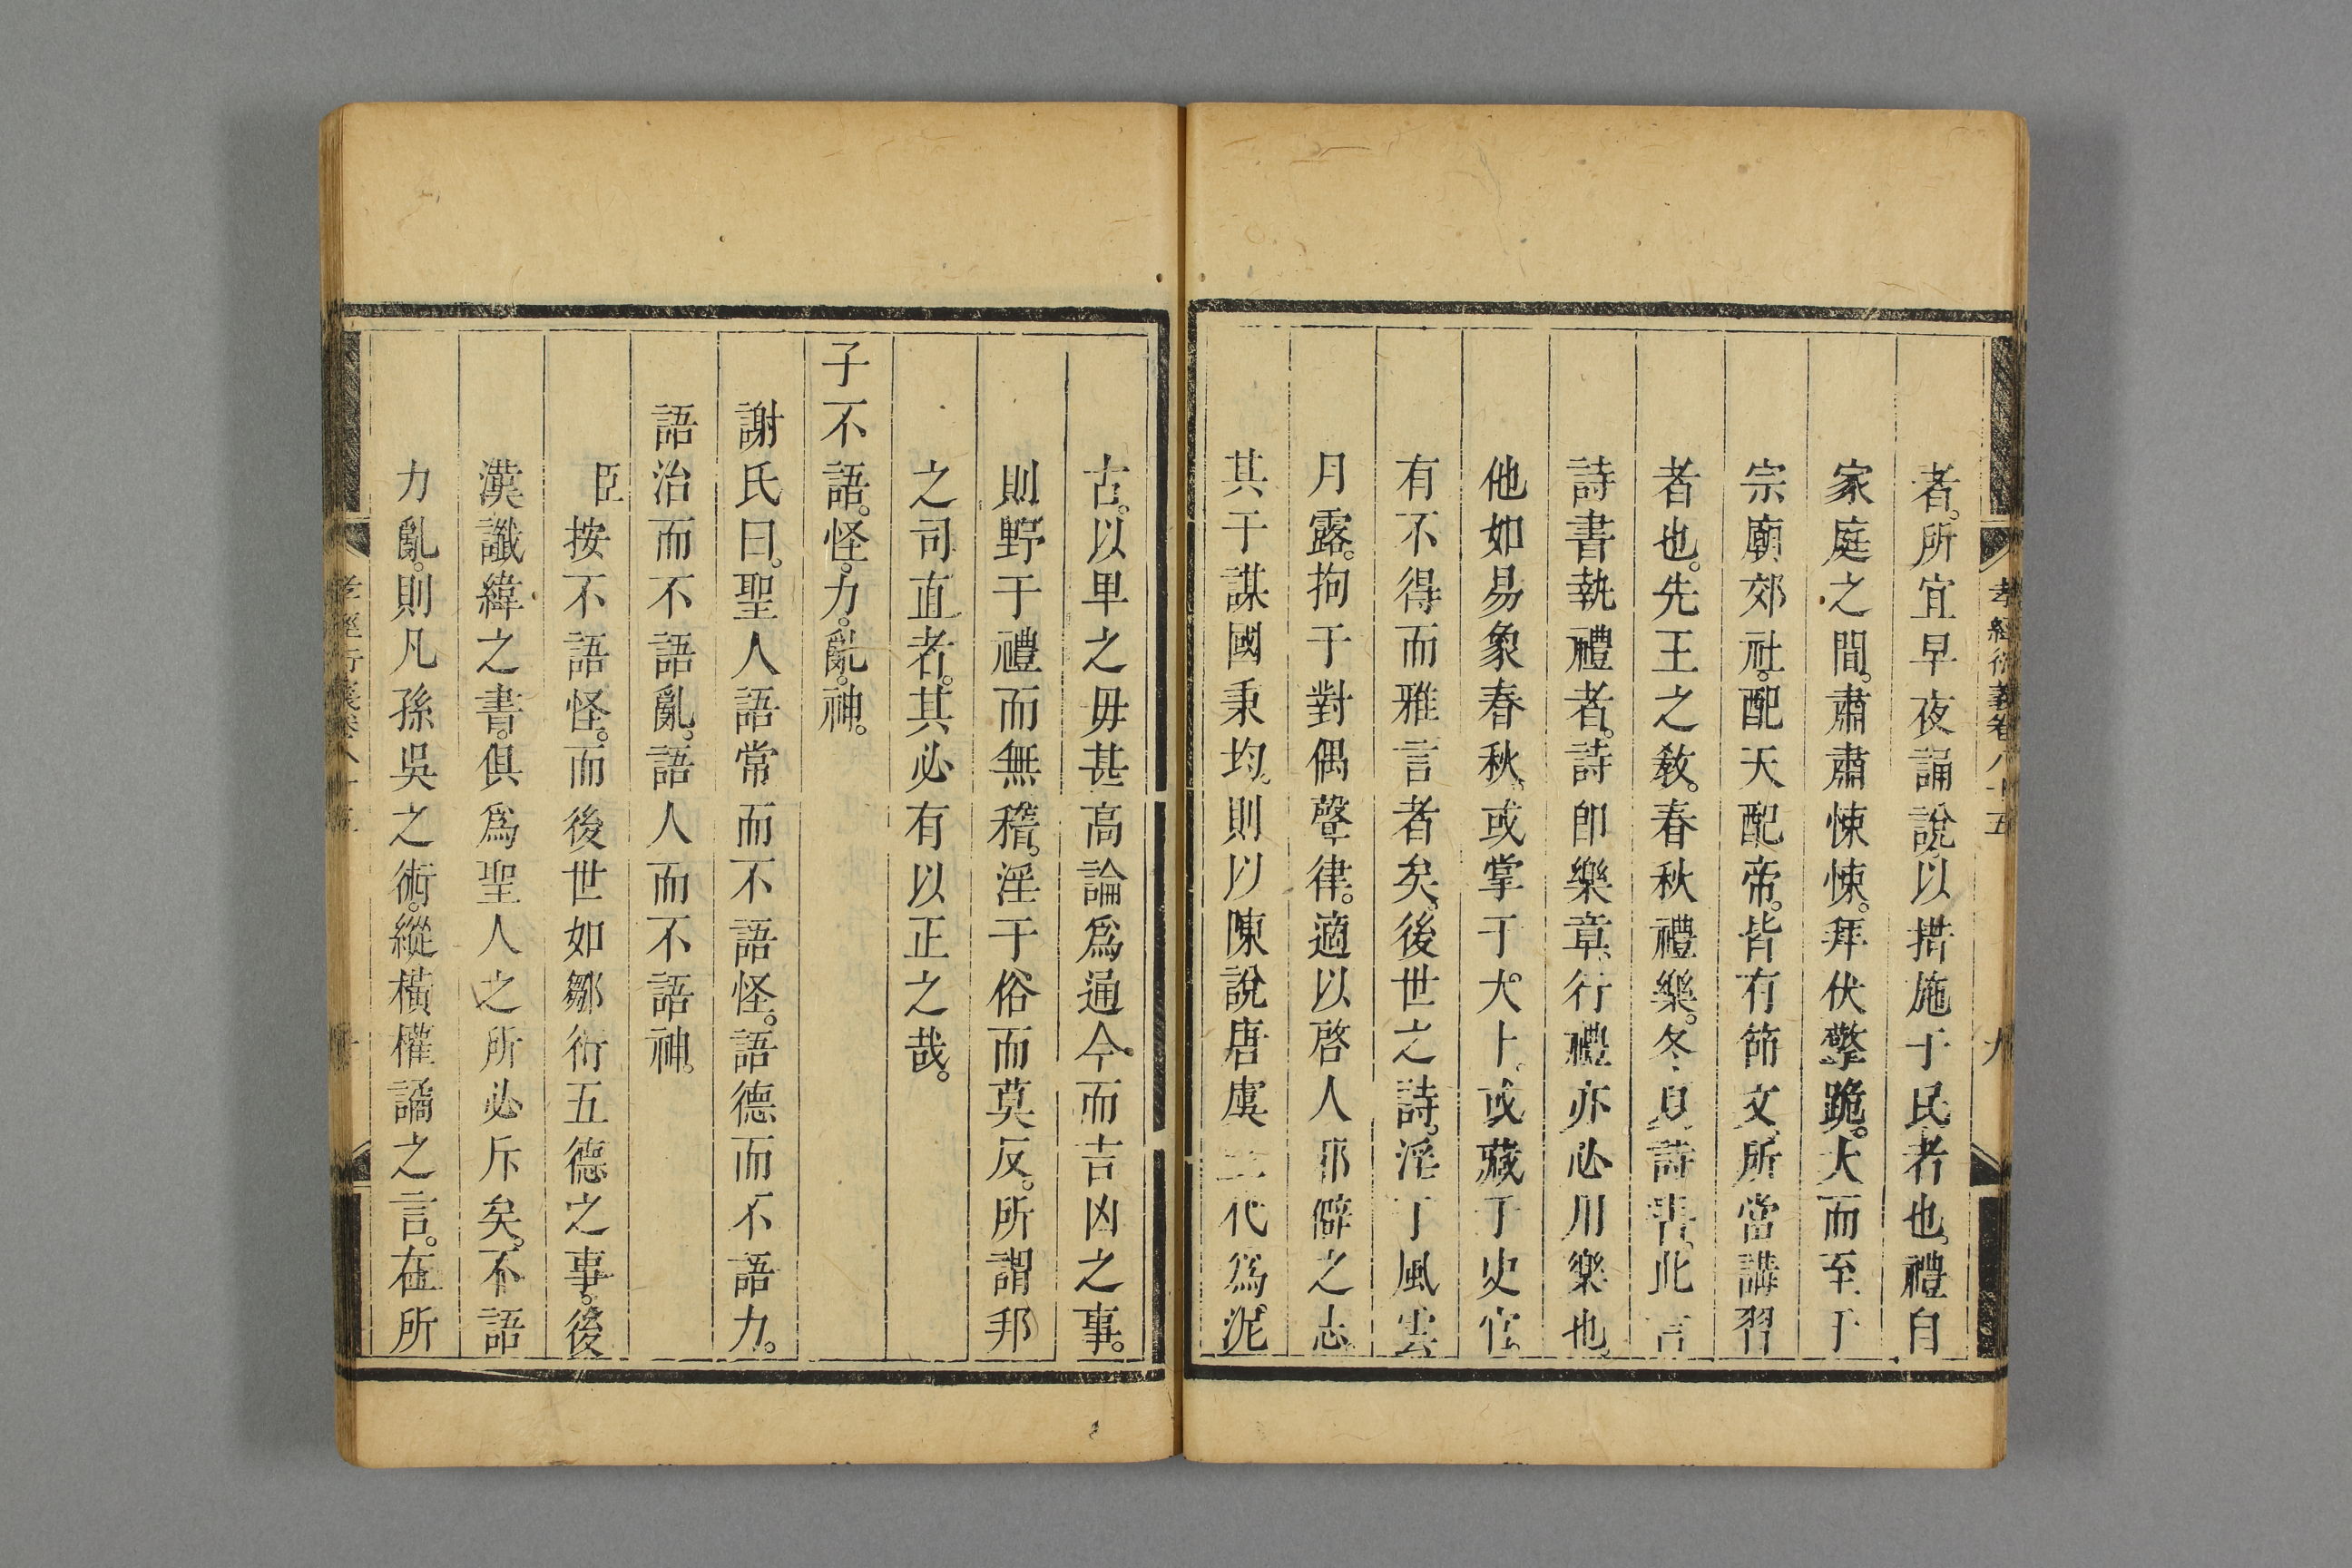 孝經衍義卷八十五 九
者。所宜早夜誦說。以措施于民者也。禮自
家庭之間。肅肅悚悚。拜伏擎跪。大而至于
宗廟郊社。配天配帝。皆有節文。所當講習
者也。先王之教。春秋禮樂。冬夏詩書。此言
詩書執禮者。詩即樂章。行禮亦必用樂也。
他如易象春秋。或掌于大卜。或藏于史官。
有不得而雅言者矣。後世之詩。淫于風雲
月露。拘于對偶聲律。適以啓人邪僻之志。
其于謀國秉均。則以陳說唐虞三代爲泥
古。以卑之毋甚高論爲通今。而吉凶之事。
則野于禮而無稽。淫于俗而莫反。所謂邦
之司直者。其必有以正之哉。
子不語。怪。力。亂。神。
謝氏曰。聖人語常而不語怪。語德而不語力。
語治而不語亂。語人而不語神。
臣按不語怪。而後世如鄒衍五德之事。後
漢讖緯之書。俱爲聖人之所必斥矣。不語
力亂。則凡孫吳之術。縱橫權譎之言。在所
孝經衍義卷八十五 十